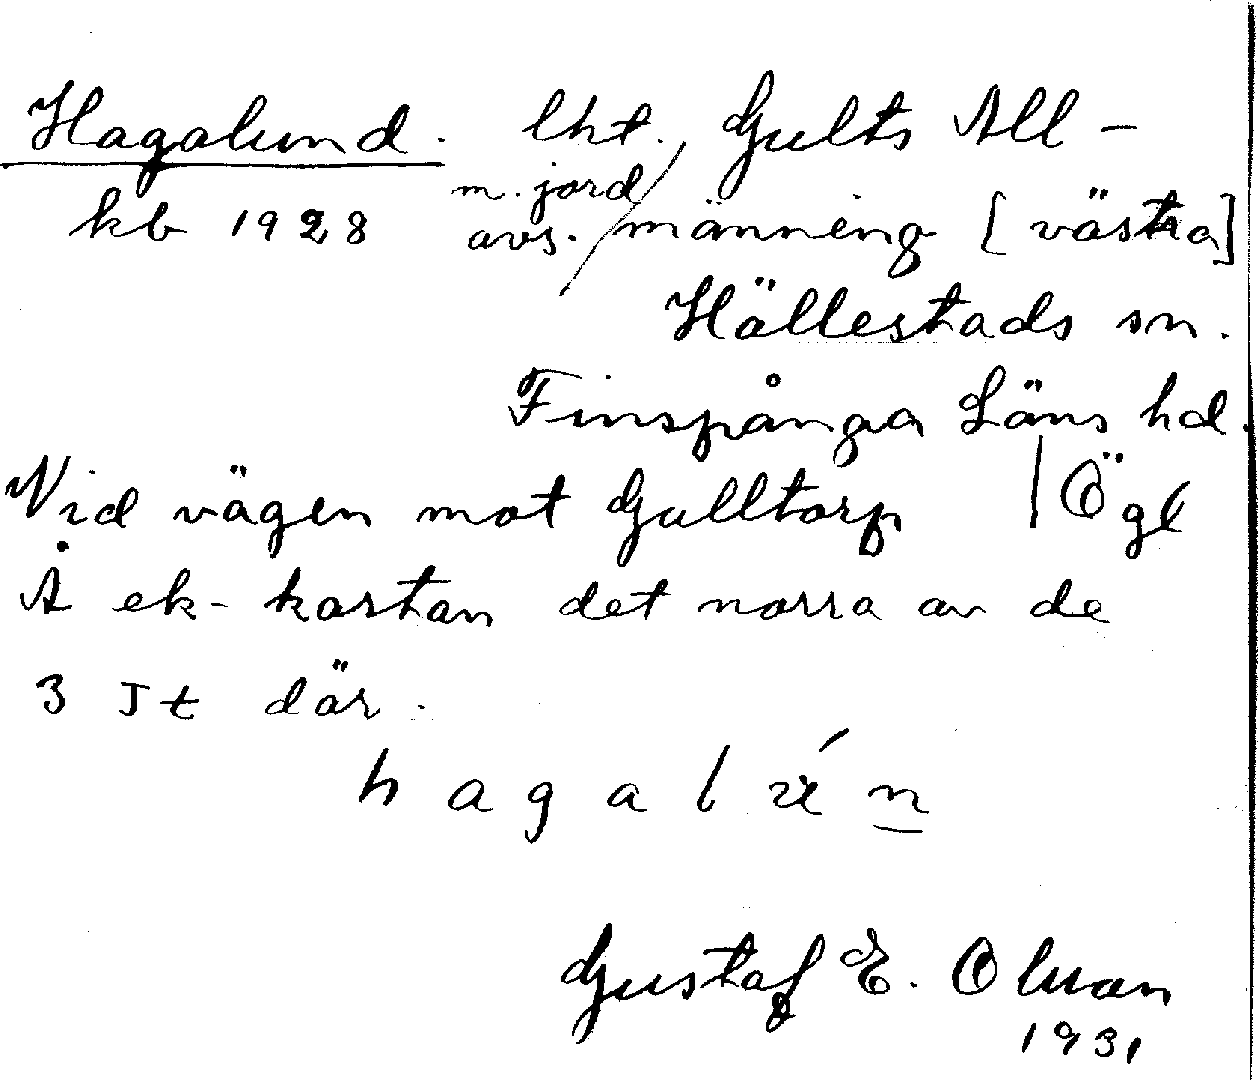 Hagalund. lht. Gults All-
kb 1928 m. jord avs. / männing [västra]
Hällestads sn.
Finspånga Läns hd.
Vid vägen mot Gulltorp | Ögl
Å ek-kartan det norra av de
3 st där.
hagal n
Gustaf E. Olsson
1931